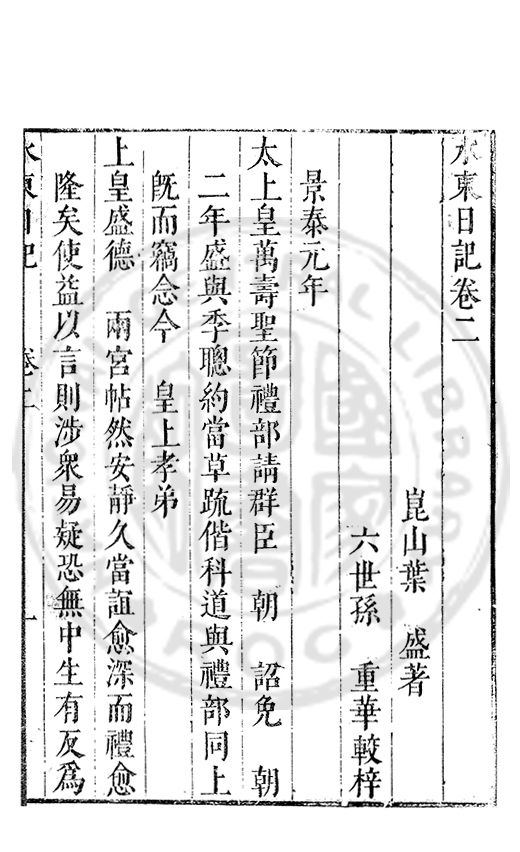 水東日記卷二
崑山葉　盛著
六世孫　重華較梓
景泰元年
太上皇萬壽聖節禮部請群臣　朝　詔免　朝
二年盛與季聰約當草疏偕科道與禮部同上
旣而竊念今　皇上孝弟
上皇盛德　兩宮帖然安靜久當誼愈深而禮愈
隆矣使益以言則涉衆易疑恐無中生有反爲
水東日記　卷二　一